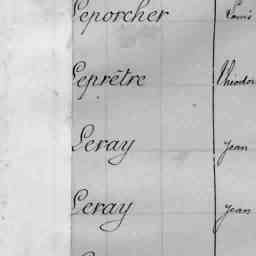 Leporcher Louis
Leprêtre Théodor
Leray Jean
Leray Jean